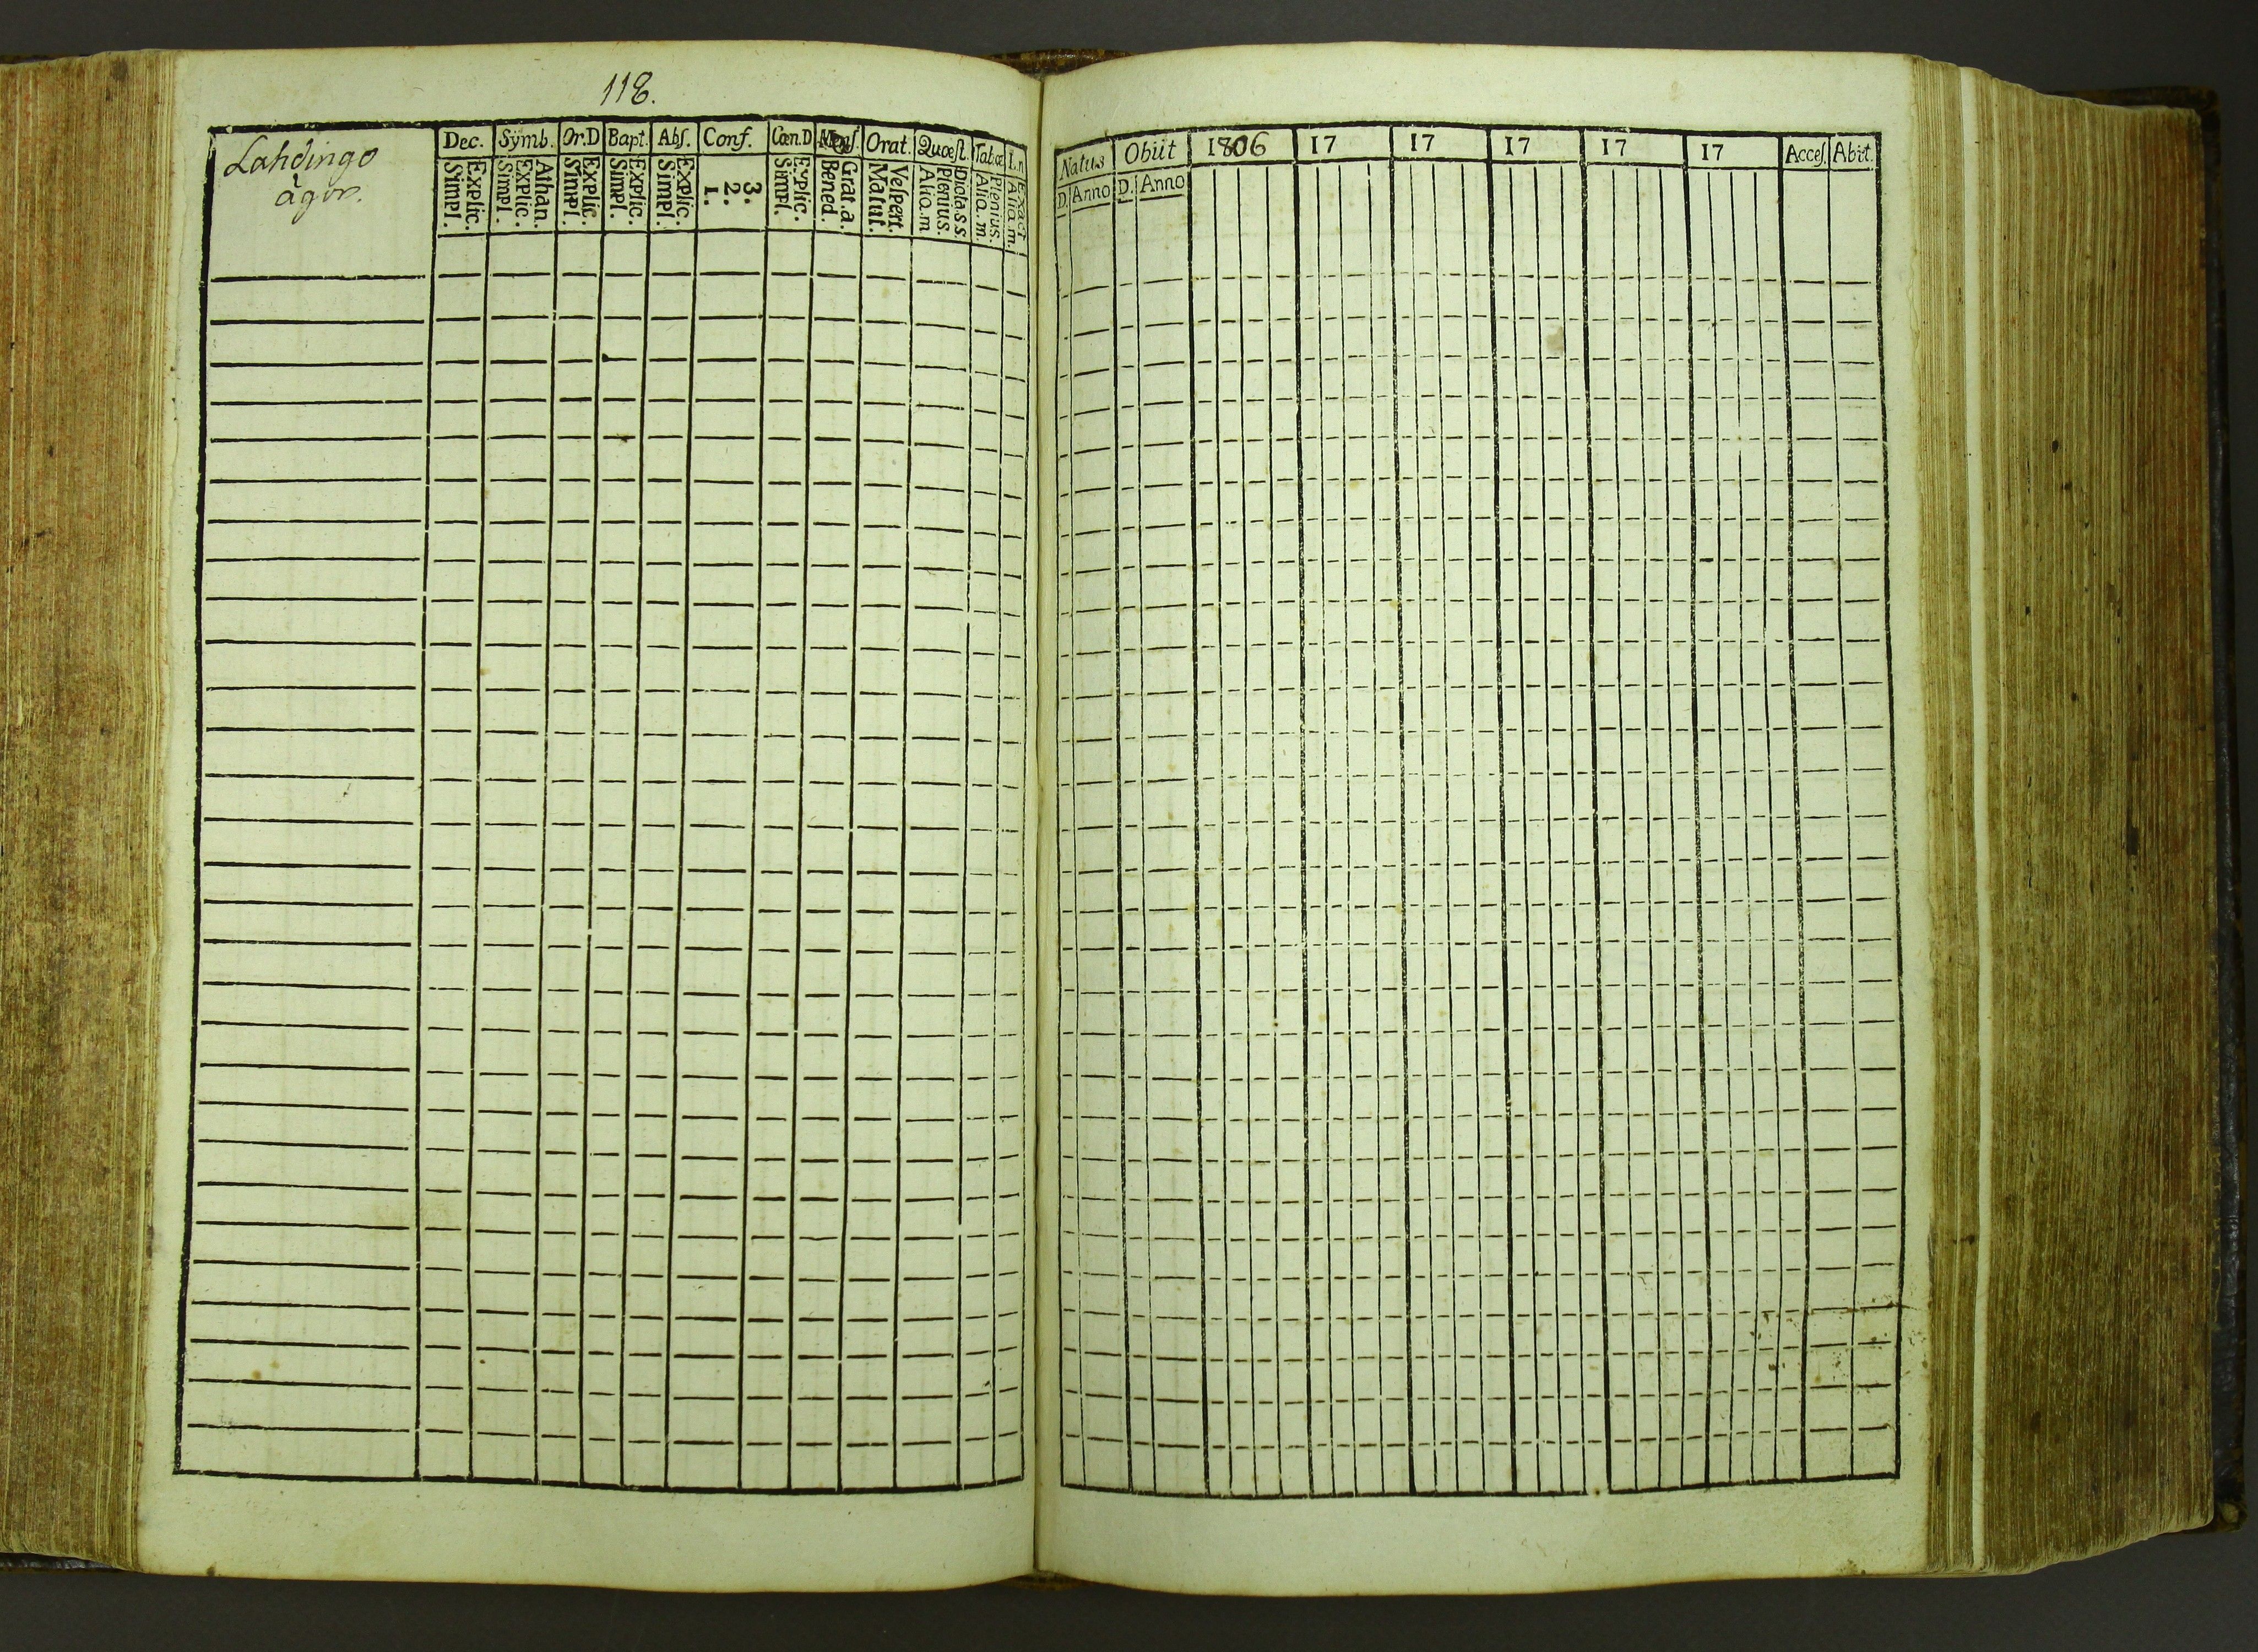 118.
Lahdingo
ägor.
Dec. Sÿmb. Or.D Bapt. Abſ. Conf. Cœn.D Menſ. Orat. Quœſt. Tab.œ I.n
Simpl. Explic. Simpl. Explic. Athan. Simpl. Explic. Simpl. Explic. Simpl. Explic. 1. 2. 3. Simpl. Explic. Bened. Grat.a. Matut. Veſpert. Alia.m Plenius. Dicta.s.s. Alia.m. Plenius. Alia.m. Exact
Natus Obiit 1806 17 17 17 17 17 Acceſ. Abit.
D. Anno D. Anno